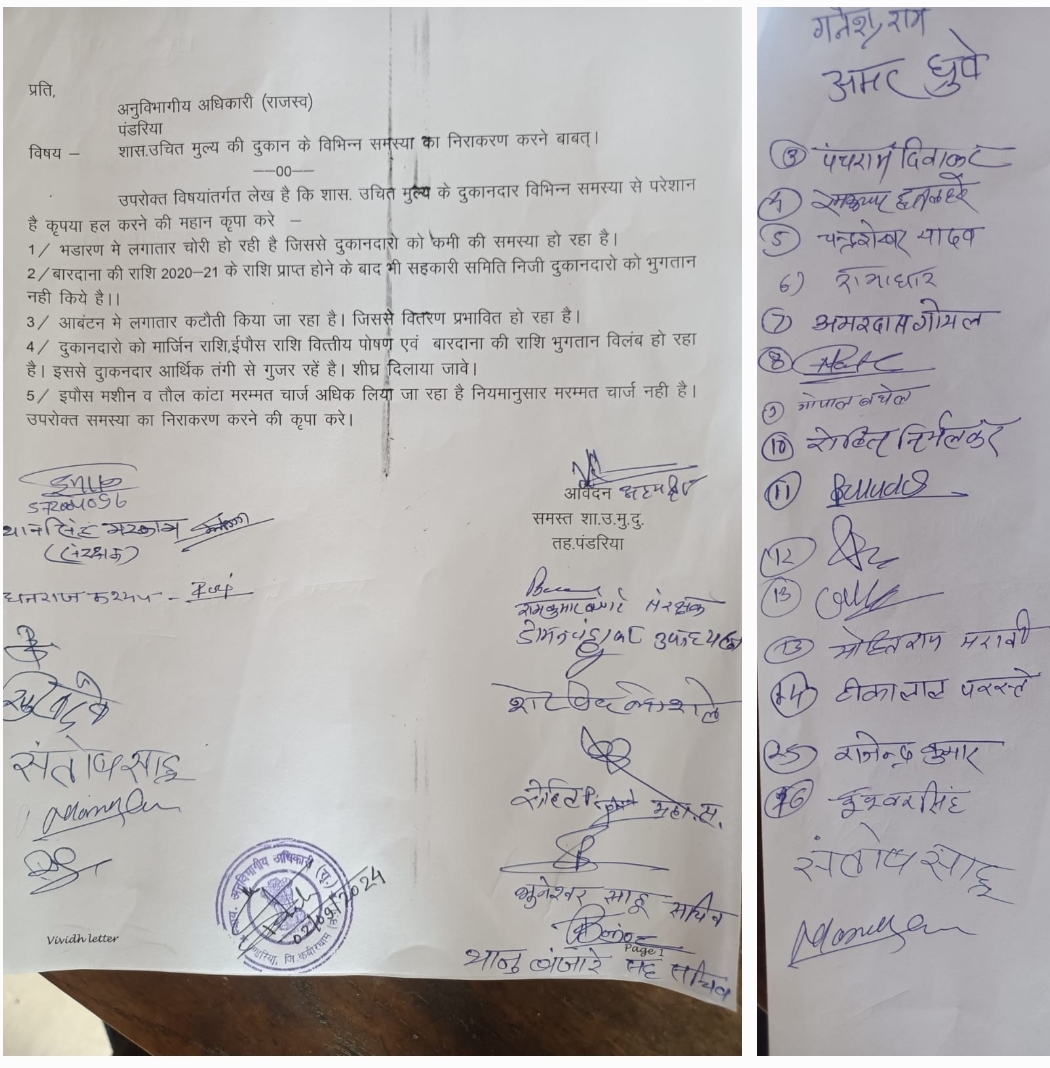 प्रति,
अनुविभागीय अधिकारी (राजस्व)
पंडरिया
विषय – शास.उचित मुल्य की दुकान के विभिन्न समस्या का निराकरण करने बाबत्।
—00—
उपरोक्त विषयांतर्गत लेख है कि शास. उचित मुल्य के दुकानदार विभिन्न समस्या से परेशान
है कृपया हल करने की महान कृपा करे –
1/ भडारण मे लगातार चोरी हो रही है जिससे दुकानदारो को कमी की समस्या हो रहा है।
2/बारदाना की राशि 2020–21 के राशि प्राप्त होने के बाद भी सहकारी समिति निजी दुकानदारो को भुगतान
नही किये है।।
3/ आबंटन मे लगातार कटौती किया जा रहा है। जिससे वितरण प्रभावित हो रहा है।
4/ दुकानदारो को मार्जिन राशि,ईपौस राशि वित्तीय पोषण एवं बारदाना की राशि भुगतान विलंब हो रहा
है। इससे दुाकनदार आर्थिक तंगी से गुजर रहें है। शीघ्र दिलाया जावे।
5/ इपौस मशीन व तौल कांटा मरम्मत चार्ज अधिक लिया जा रहा है नियमानुसार मरम्मत चार्ज नही है।
उपरोक्त समस्या का निराकरण करने की कृपा करे।
आवेदन
समस्त शा.उ.मु.दु.
तह.पंडरिया
थानसिंह मरकाम
(संरक्षक)
धनराज कश्यप –
रामकुमार संरक्षक
उपाध्यक्ष
संतोष साहू
भुनेश्वर साहू सचिव
थानु बंजारे सह सचिव
अनुविभागीय अधिकारी
02/09/2024
जि.कबीरधाम
Vividh letter
Page 1
गनेश राम
अमर धुर्वे
③ पंचराम दिवाकर
④
⑤ चन्द्रशेखर यादव
6) रामाधार
⑦ अमरदास गोयल
⑧
⑨ गोपाल बघेल
⑩ रोहित निर्मलकर
⑪
⑫
⑬
⑬ मोहितराम मरावी
⑭ टीकालाल परस्ते
राजेन्द्र कुमार
ईश्वरसिंह
संतोष साहू